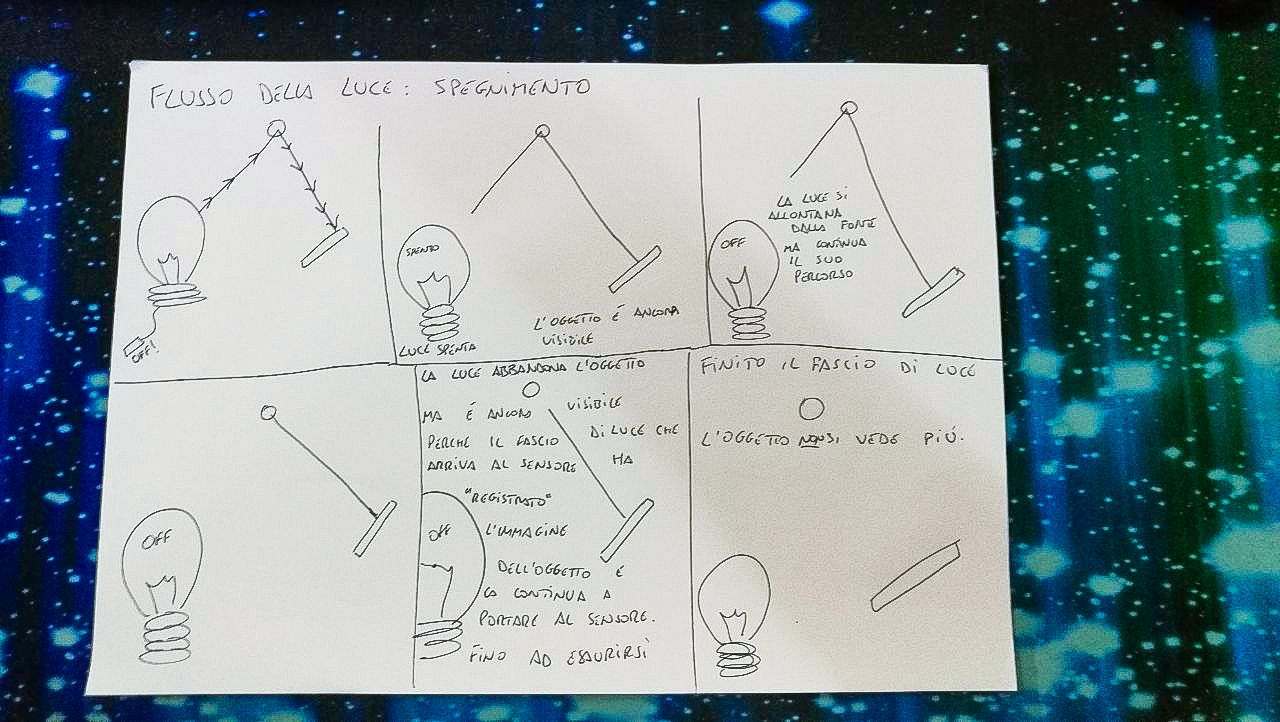 FLUSSO DELLA LUCE: SPEGNIMENTO
OFF!
SPENTO
LUCE SPENTA
L'OGGETTO É ANCORA
VISIBILE
OFF
LA LUCE SI
ALLONTANA
DALLA FONTE
MA CONTINUA
IL SUO
PERCORSO
OFF
LA LUCE ABBANDONA L'OGGETTO
MA É ANCORA VISIBILE
PERCHE IL FASCIO DI LUCE CHE
ARRIVA AL SENSORE HA
"REGISTRATO"
OFF
L'IMMAGINE
DELL'OGGETTO E
LA CONTINUA A
PORTARE AL SENSORE.
FINO AD ESAURIRSI
FINITO IL FASCIO DI LUCE
L'OGGETTO NON SI VEDE PIÚ.